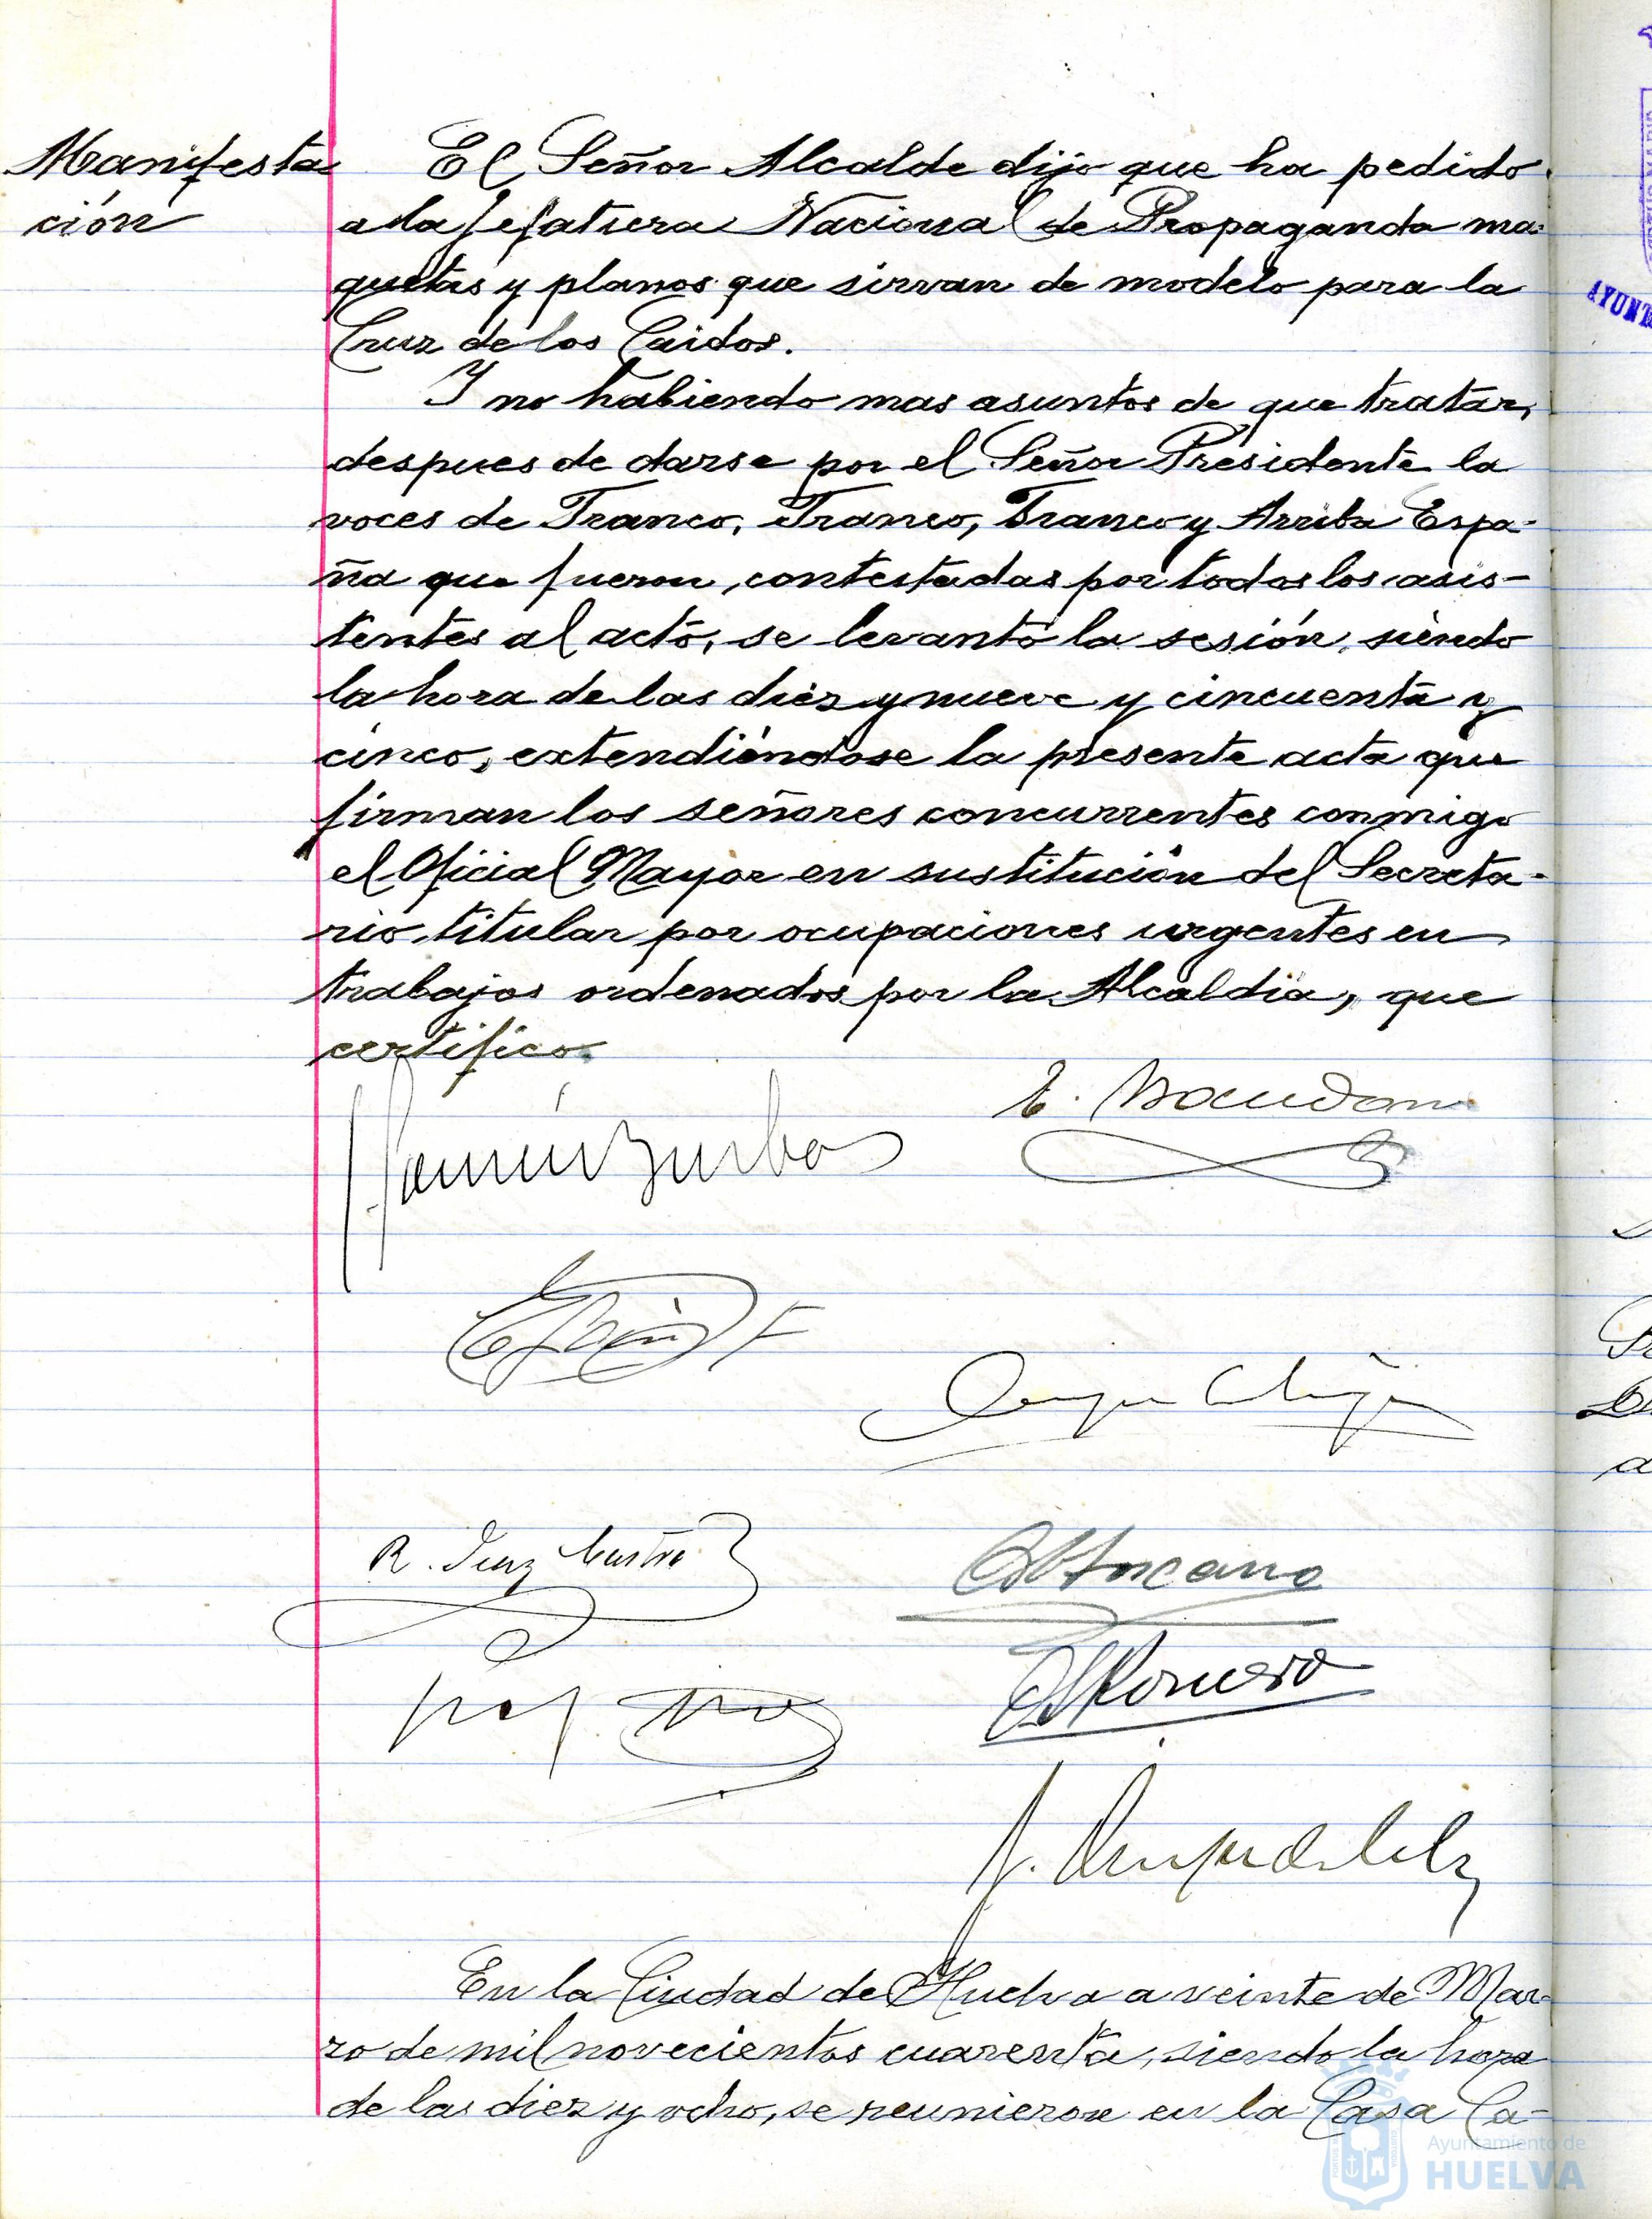 Manifesta
ción
El Señor Alcalde dijo que ha pedido
a la Jefatura Nacional de Propaganda ma-
quetas y planos que sirvan de modelo para la
Cruz de los Caidos.
Y no habiendo mas asuntos de que tratar,
despues de darse por el Señor Presidente la
voces de Franco, Franco, Franco y Arriba Espa-
ña que fueron contestadas por todos los asis-
tentes al acto, se levantó la sesión, siendo
la hora de las diez y nueve y cincuenta y
cinco, extendiéndose la presente acta que
firman los señores concurrentes conmigo
el Oficial Mayor en sustitución del Secreta-
rio titular por ocupaciones urgentes en
trabajos ordenados por la Alcaldia, que
certifico.
R. Diaz Castro
Toscano
Romero
En la Ciudad de Huelva a veinte de Mar-
zo de mil novecientos cuarenta, siendo la hora
de las diez y ocho, se reunieron en la Casa Ca-
Ayuntamiento de
HUELVA
AYUNT